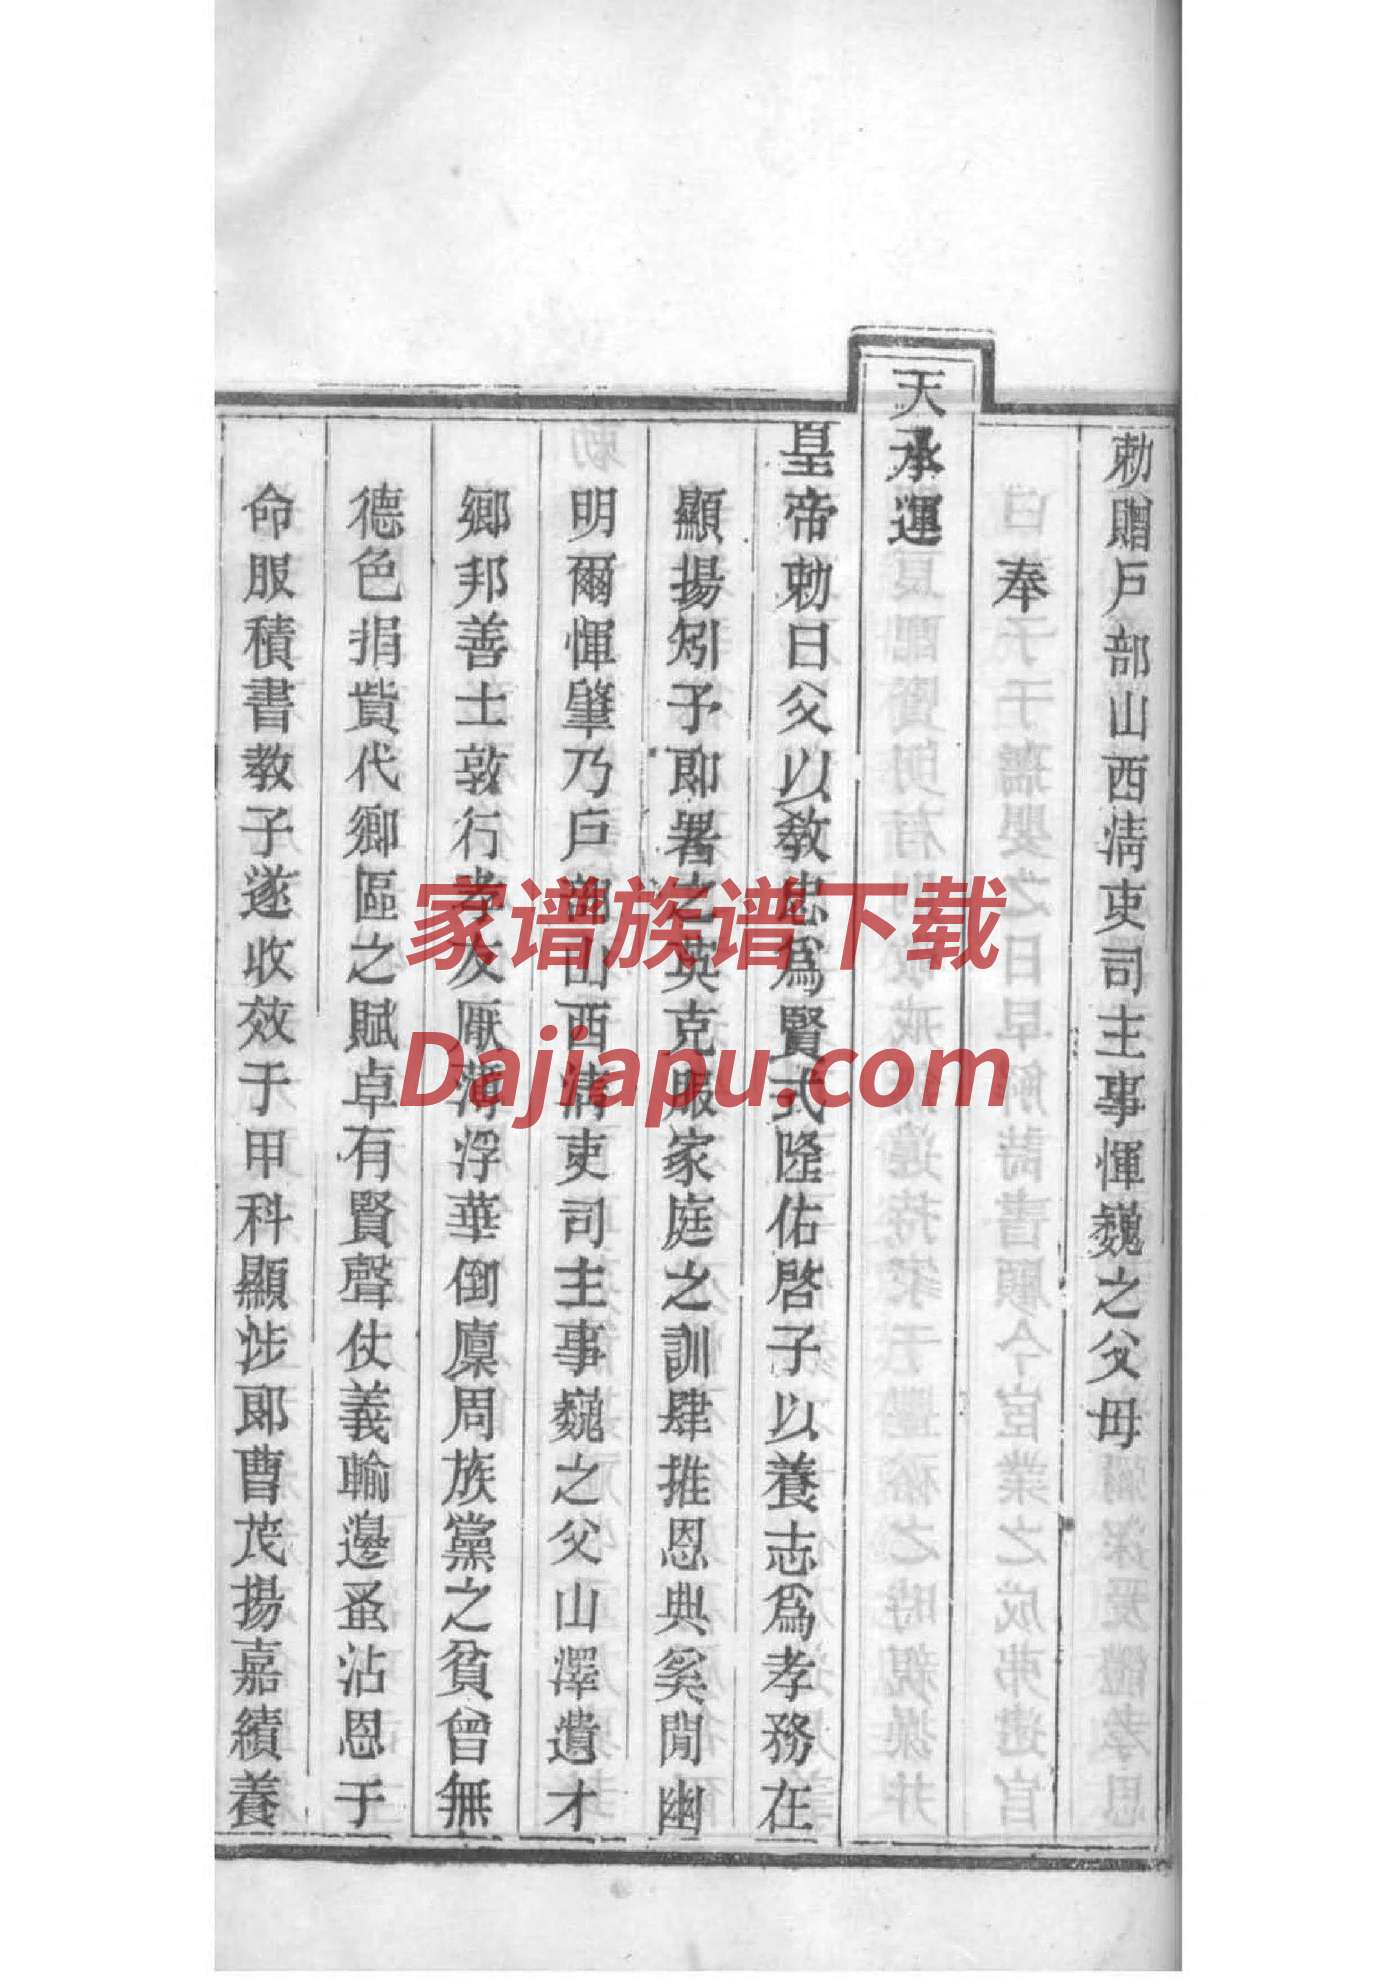 勅贈戸部山西清吏司主事惲巍之父母
奉
天承運
皇帝勅曰父以教忠爲賢式隆佑啓子以養志爲孝務在
顯揚矧予郎署之英克服家庭之訓肆推恩典奚閒幽
明爾惲肇乃戸部山西清吏司主事巍之父山澤遺才
鄉邦善士敦行孝友厭薄浮華倒廩周族黨之貧曾無
德色捐貲代鄉區之賦卓有賢聲仗義輸邊蚤沾恩于
命服積書教子遂收效于甲科顯涉郎曹茂揚嘉績養
家谱族谱下载
Dajiapu.com